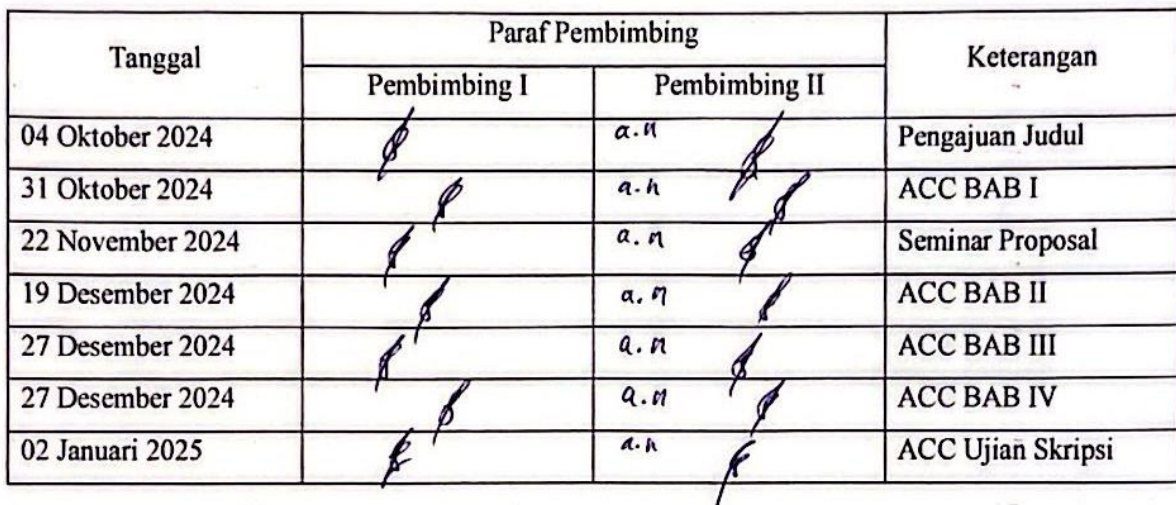 Tanggal Paraf Pembimbing Keterangan
Pembimbing I Pembimbing II
04 Oktober 2024 a.n Pengajuan Judul
31 Oktober 2024 a.n ACC BAB I
22 November 2024 a.n Seminar Proposal
19 Desember 2024 a.n ACC BAB II
27 Desember 2024 a.n ACC BAB III
27 Desember 2024 a.n ACC BAB IV
02 Januari 2025 a.n ACC Ujian Skripsi